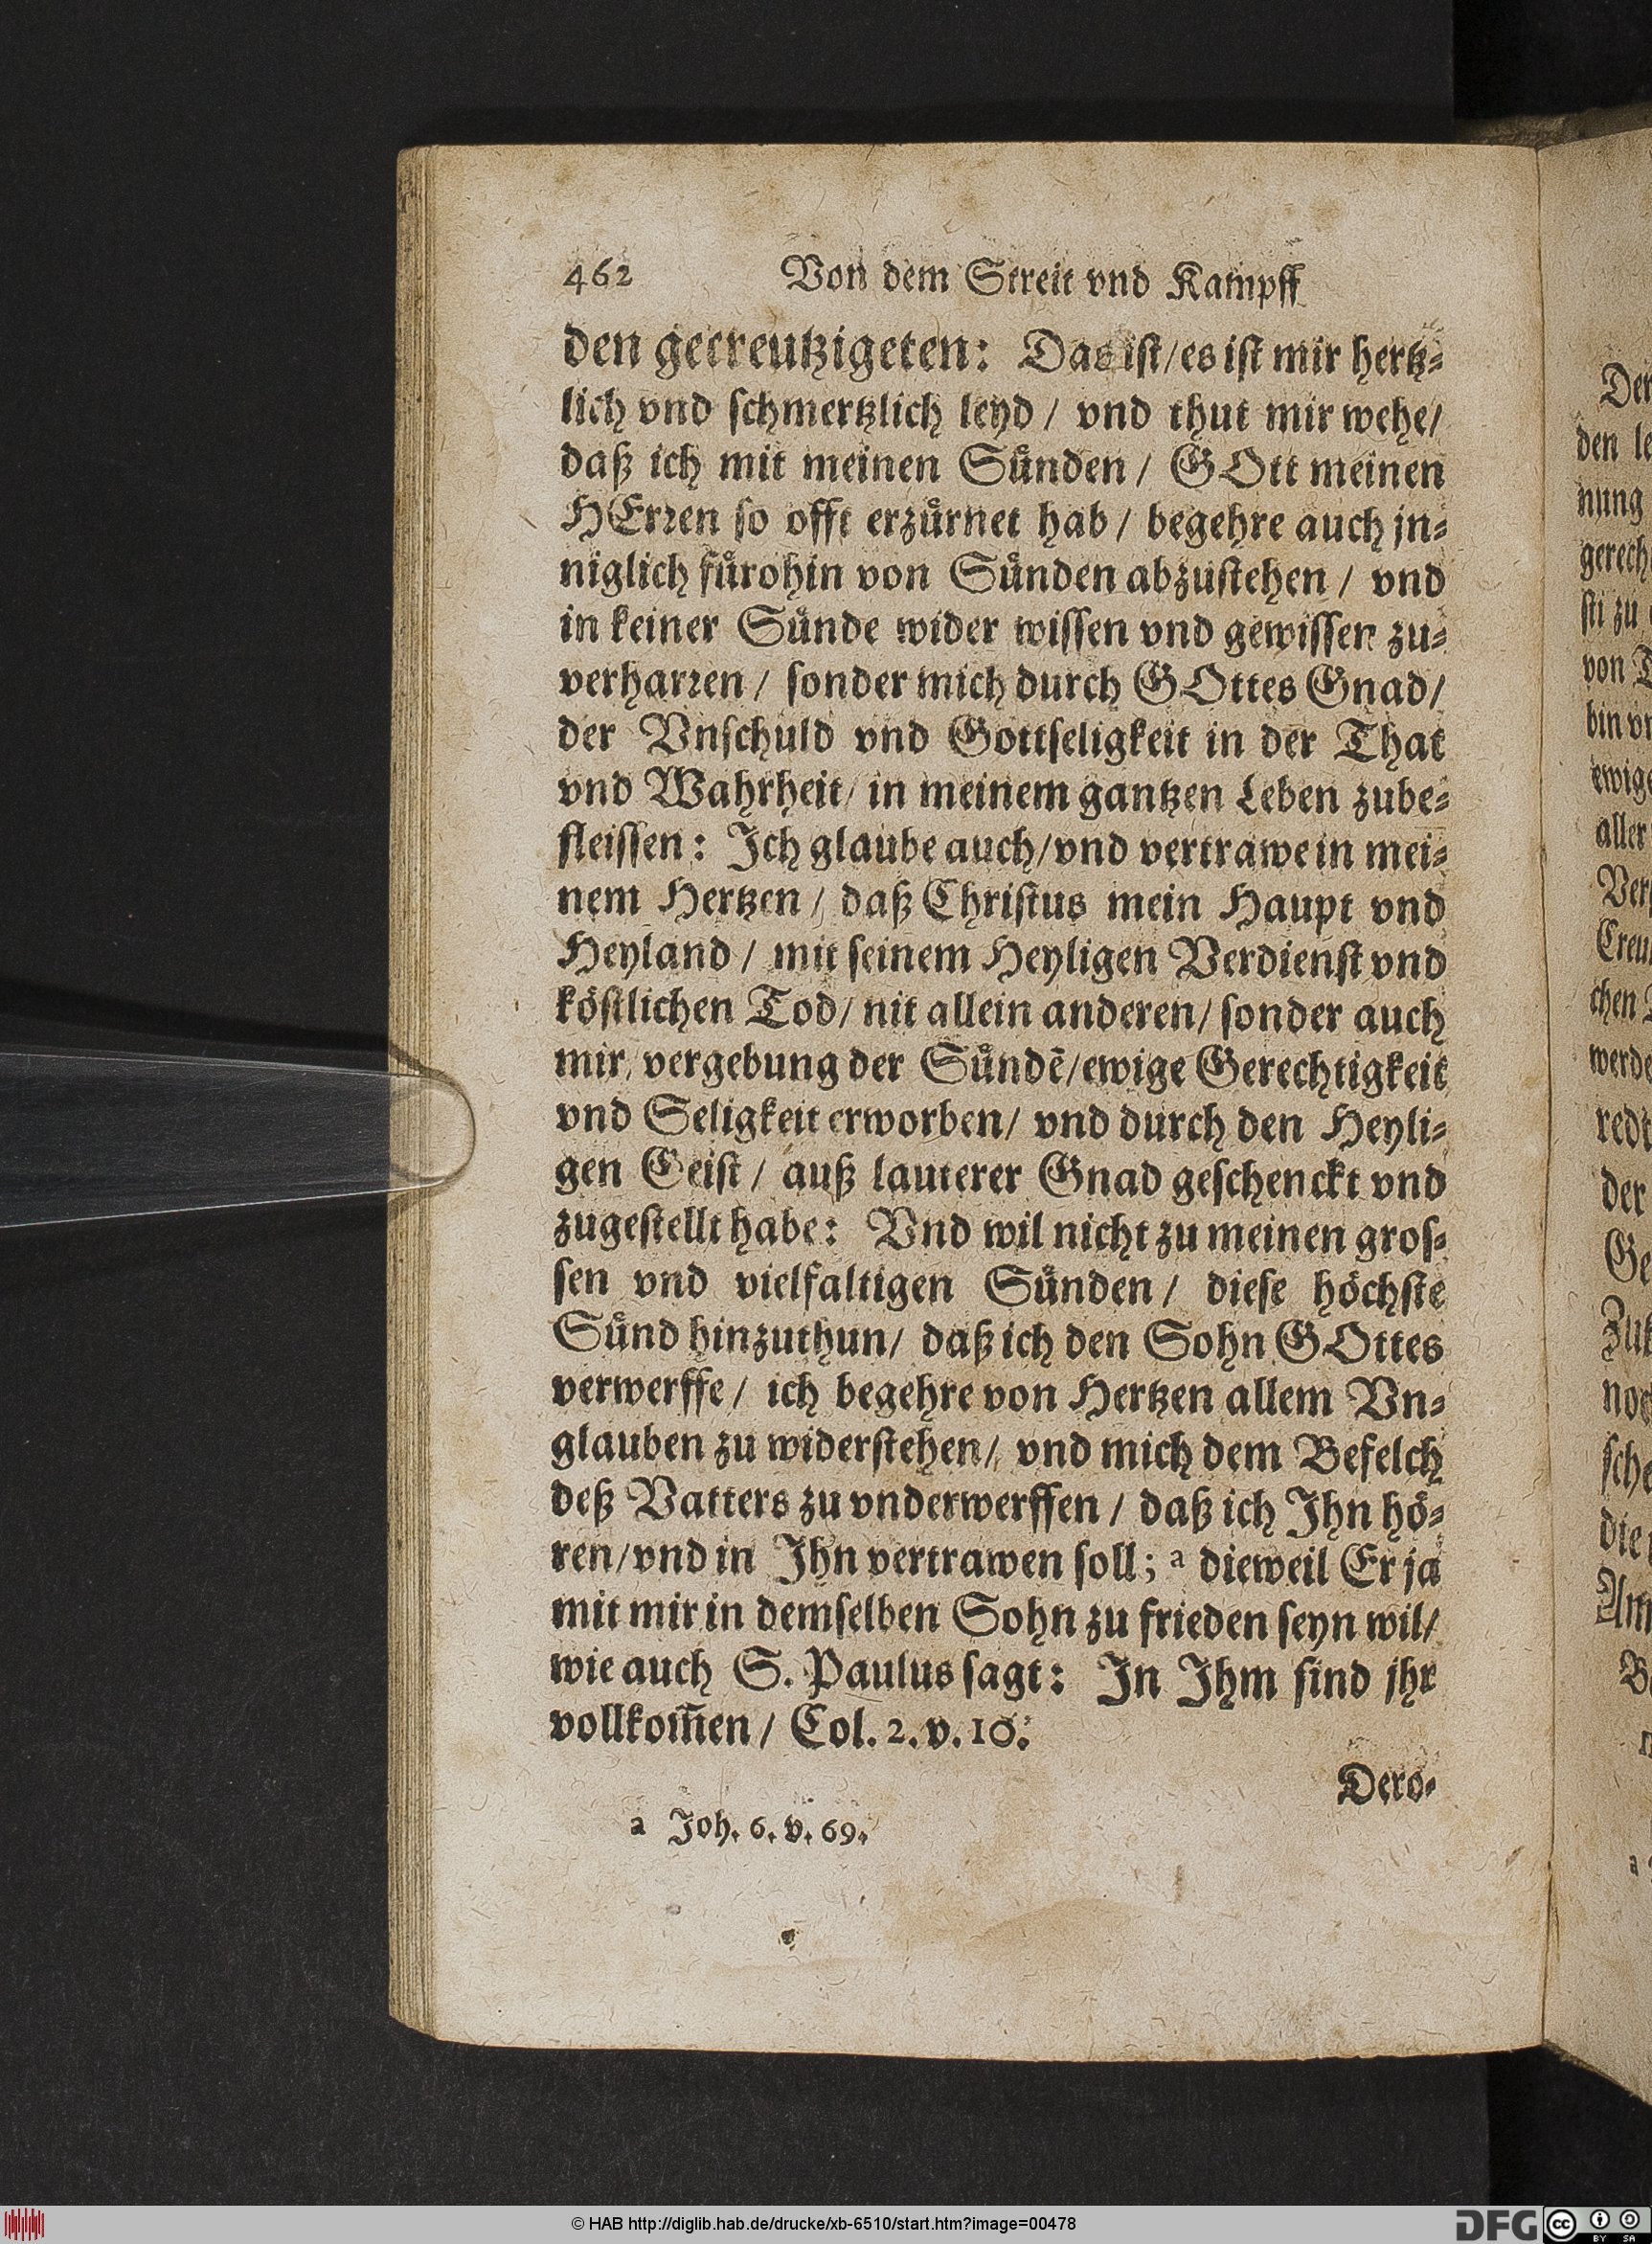 462 Von dem Streit vnd Kampff
den gecreutzigeten: Das ist/ es ist mir hertz⸗
lich vnd schmertzlich leyd / vnd thut mir wehe/
daß ich mit meinen Sünden / GOtt meinen
HErren so offt erzürnet hab / begehre auch jn⸗
niglich fürohin von Sünden abzustehen / vnd
in keiner Sünde wider wissen vnd gewissen zu⸗
verharren / sonder mich durch GOttes Gnad/
der Vnschuld vnd Gottseligkeit in der That
vnd Wahrheit/ in meinem gantzen Leben zube⸗
fleissen: Ich glaube auch/ vnd vertrawe in mei⸗
nem Hertzen / daß Christus mein Haupt vnd
Heyland / mit seinem Heyligen Verdienst vnd
köstlichen Tod/ nit allein anderen/ sonder auch
mir/ vergebung der Sündẽ/ ewige Gerechtigkeit
vnd Seligkeit erworben/ vnd durch den Heyli⸗
gen Geist / auß lauterer Gnad geschenckt vnd
zugestellt habe: Vnd wil nicht zu meinen gros⸗
sen vnd vielfaltigen Sünden / diese höchste
Sünd hinzuthun/ daß ich den Sohn GOttes
verwerffe / ich begehre von Hertzen allem Vn⸗
glauben zu widerstehen/ vnd mich dem Befelch
deß Vatters zu vnderwerffen / daß ich Ihn hö⸗
ren/ vnd in Ihn vertrawen soll; a dieweil Er ja
mit mir in demselben Sohn zu frieden seyn wil/
wie auch S. Paulus sagt: In Ihm sind jhr
vollkom̃en / Col. 2. v. 10.
Dero⸗
a Joh. 6. v. 69.
den
nung
gerech
sti zu
von
bin
aller
Creu
chen
werde
der
die
© HAB http://diglib.hab.de/drucke/xb-6510/start.htm?image=00478
DFG
cc BY SA